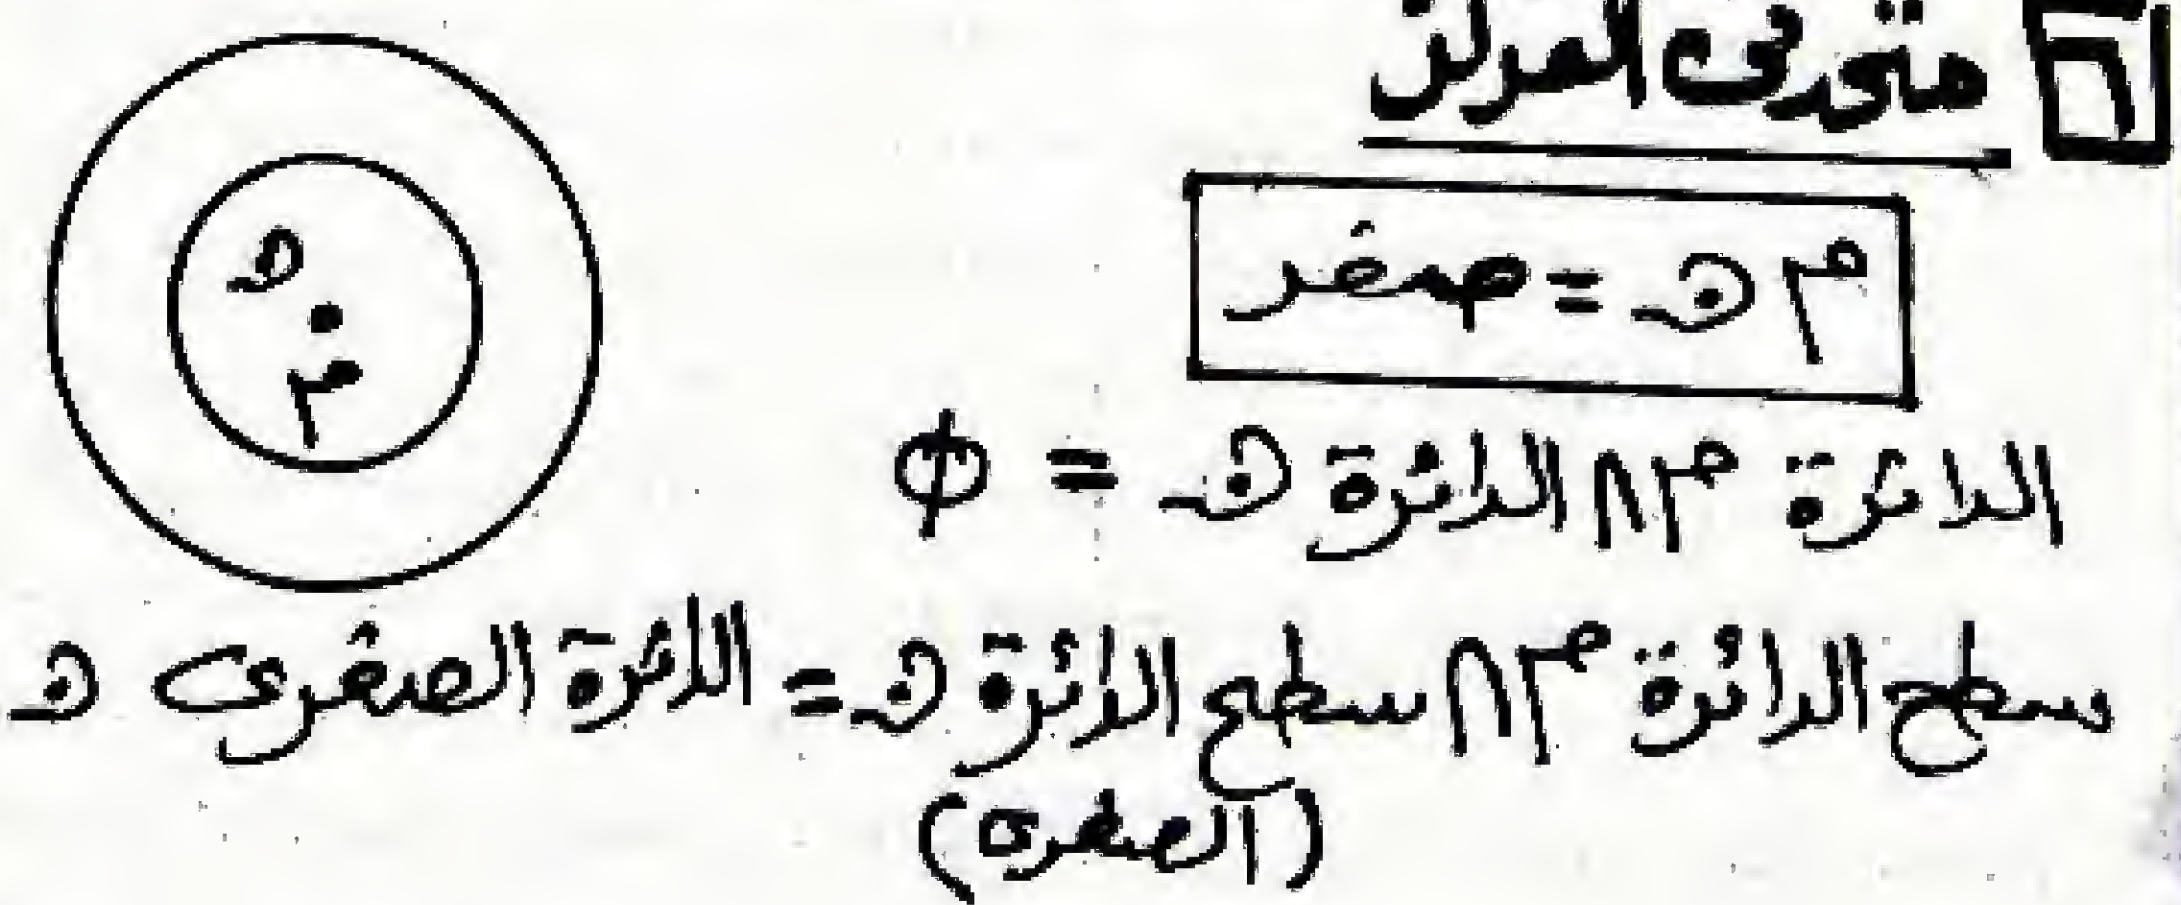 ٦ متحدتى المركز
م ن = صفر
ن
م
الدائرة م ∩ الدائرة ن = ϕ
سطح الدائرة م ∩ سطح الدائرة ن = الدائرة الصغرى ن
(الصغرى)